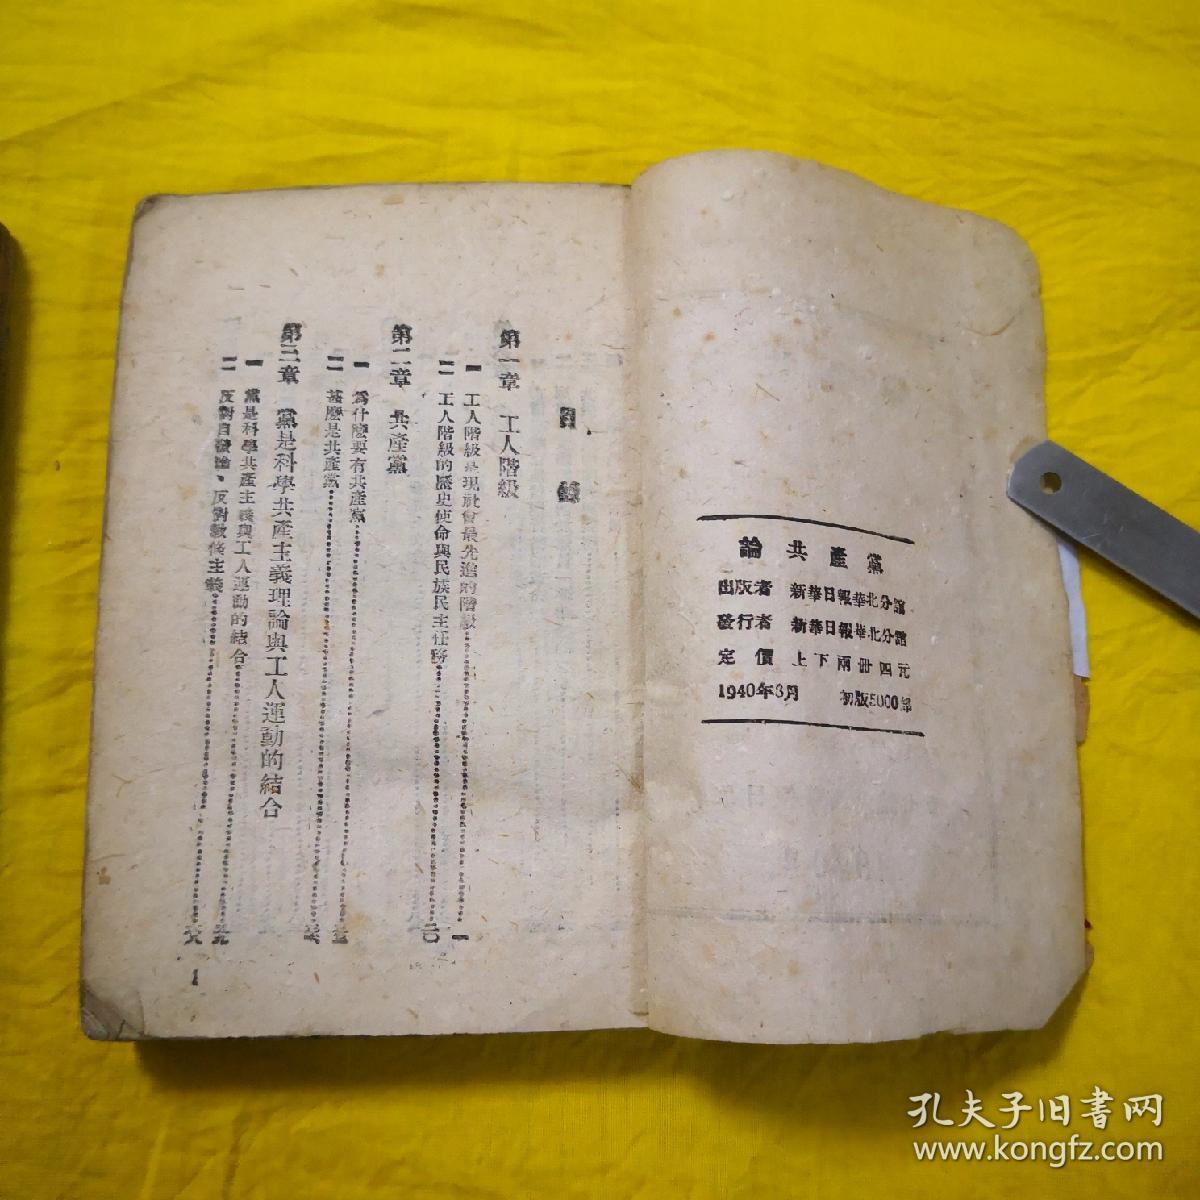 論共產黨
出版者 新華日報華北分館
發行者 新華日報華北分館
定價 上下兩册四元
1940年6月 初版5000部
目錄
第一章 工人階級
一 工人階級是現社會最先進的階級 一
二 工人階級的歷史使命與民族民主任務
第二章 共產黨
一 為什麼要有共產黨
二 甚麼是共產黨
第三章 黨是科學共產主義理論與工人運動的結合
一 黨是科學共產主義與工人運動的結合
二 反對自發論、反對教條主義
1
孔夫子旧书网
www.kongfz.com